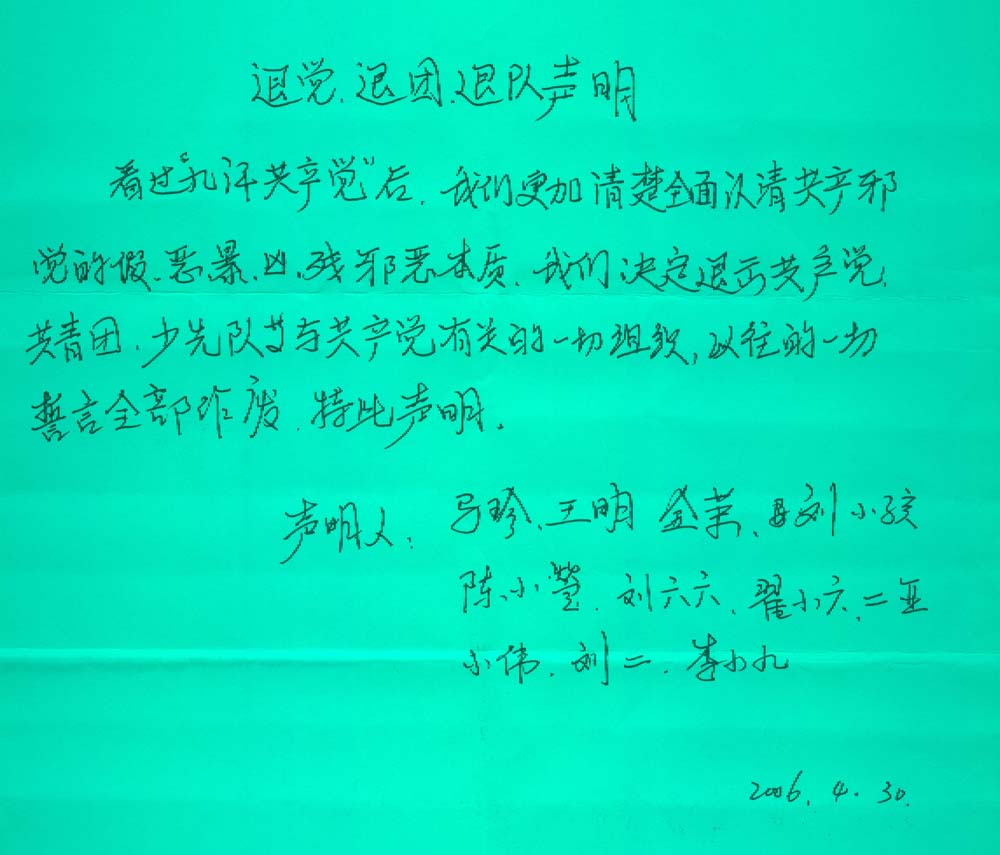 退党.退团.退队声明
看过“九评共产党”后.我们更加清楚全面认清共产邪
党的假.恶.暴.凶.残邪恶本质.我们决定退出共产党.
共青团.少先队等与共产党有关的一切组织,以往的一切
誓言全部作废.特此声明.
声明人: 马珍、王明 金荣、刘小孩
陈小莹.刘六六、翟小六、二亚
小伟.刘二.李小九
2006.4.30.